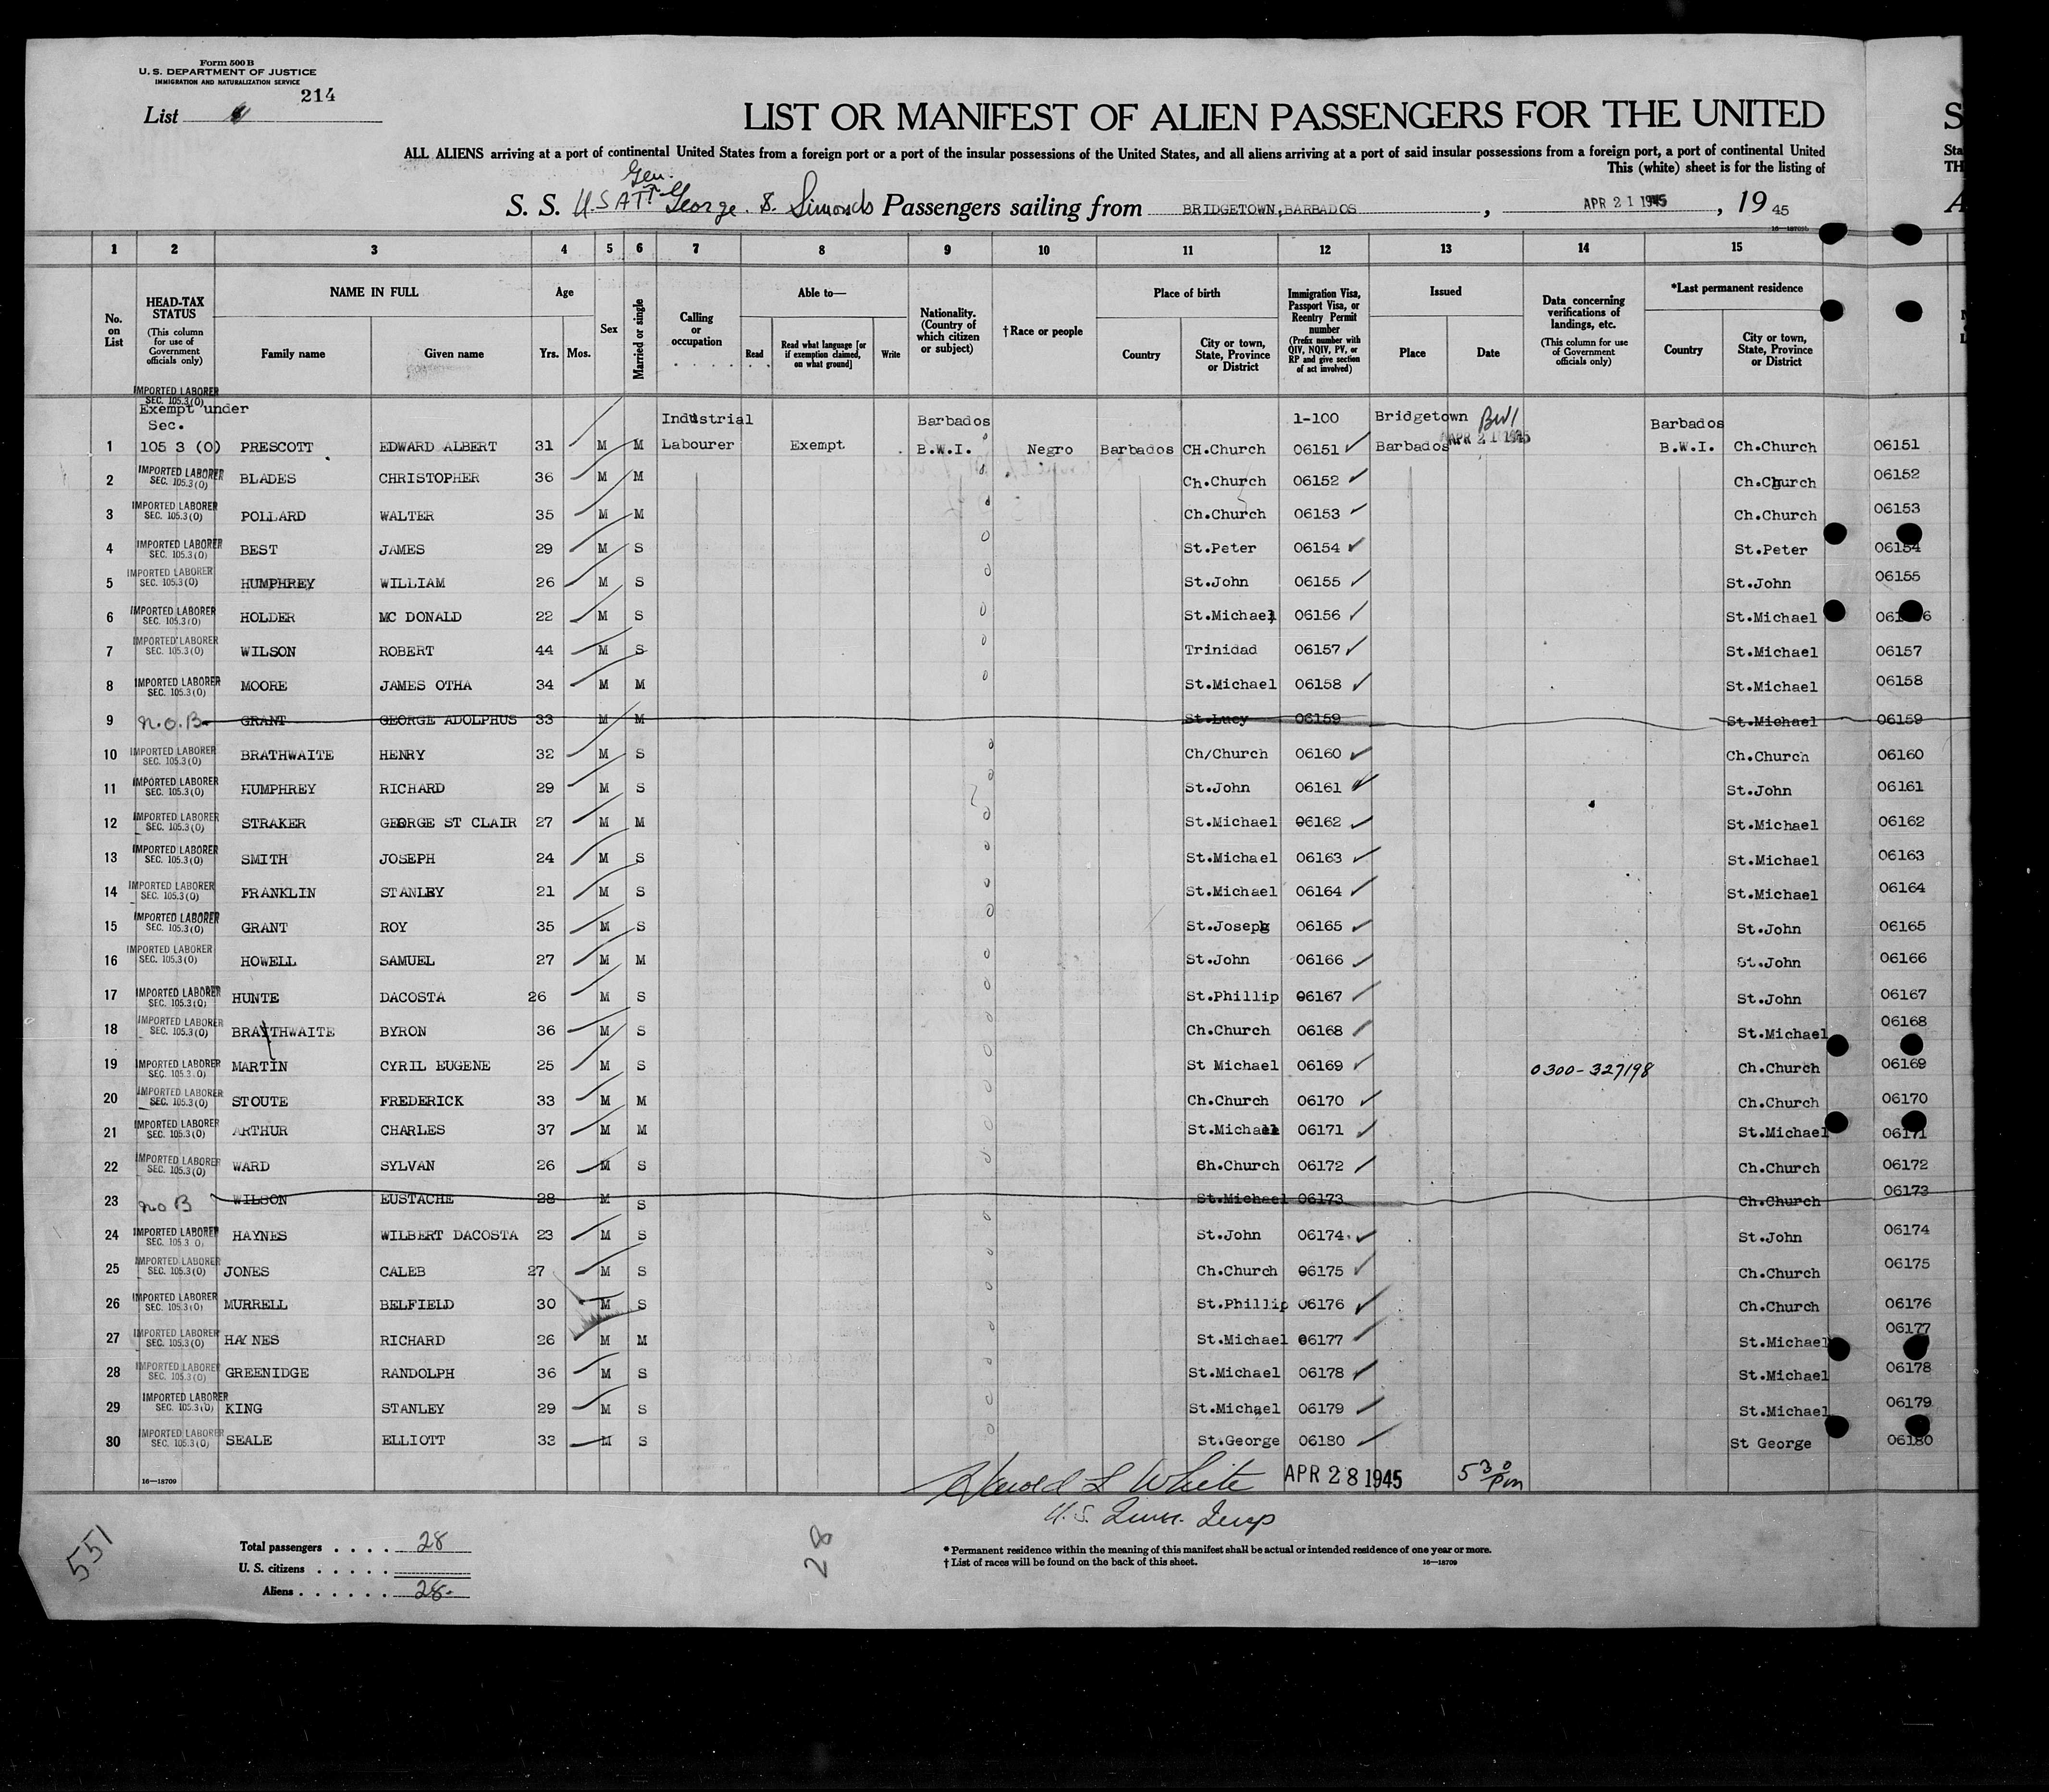 Form 500 B
U. S. DEPARTMENT OF JUSTICE
IMMIGRATION AND NATURALIZATION SERVICE
214
List
LIST OR MANIFEST OF ALIEN PASSENGERS FOR THE UNITED
S
ALL ALIENS arriving at a port of continental United States from a foreign port or a port of the insular possessions of the United States, and all aliens arriving at a port of said insular possessions from a foreign port, a port of continental United
Sta
This (white) sheet is for the listing of
TH
Gen.
S. S. U.S.A.T. George. S. Simonds Passengers sailing from BRIDGETOWN, BARBADOS, APR 21 1945, 19 45
A
16—18709b
1 2 3 4 5 6 7 8 9 10 11 12 13 14 15
No. on List
HEAD-TAX STATUS (This column for use of Government officials only)
NAME IN FULL
Family name
Given name
Age
Yrs.
Mos.
Sex
Married or single
Calling or occupation
Able to—
Read
Read what language [or if exemption claimed, on what ground]
Write
Nationality. (Country of which citizen or subject)
†Race or people
Place of birth
Country
City or town, State, Province or District
Immigration Visa, Passport Visa, or Reentry Permit number (Prefix number with QIV, NQIV, PV, or RP and give section of act involved)
Issued
Place
Date
Data concerning verifications of landings, etc. (This column for use of Government officials only)
*Last permanent residence
Country
City or town, State, Province or District
IMPORTED LABORER SEC. 105.3(0)
Exempt under Industrial Barbados 1-100 Bridgetown BWI Barbados
Sec.
1 105 3 (0) PRESCOTT EDWARD ALBERT 31 M M Labourer Exempt B.W.I. Negro Barbados CH.Church 06151 Barbados APR 21 1945 B.W.I. Ch.Church 06151
2 IMPORTED LABORER SEC. 105.3(0) BLADES CHRISTOPHER 36 M M Ch.Church 06152 Ch.Church 06152
3 IMPORTED LABORER SEC. 105.3(0) POLLARD WALTER 35 M M Ch.Church 06153 Ch.Church 06153
4 IMPORTED LABORER SEC. 105.3(0) BEST JAMES 29 M S St.Peter 06154 St.Peter 06154
5 IMPORTED LABORER SEC. 105.3(0) HUMPHREY WILLIAM 26 M S St.John 06155 St.John 06155
6 IMPORTED LABORER SEC. 105.3(0) HOLDER MC DONALD 22 M S St.Michael 06156 St.Michael 06156
7 IMPORTED LABORER SEC. 105.3(0) WILSON ROBERT 44 M S Trinidad 06157 St.Michael 06157
8 IMPORTED LABORER SEC. 105.3(0) MOORE JAMES OTHA 34 M M St.Michael 06158 St.Michael 06158
9 n.o.B. GRANT GEORGE ADOLPHUS 33 M M St.Lucy 06159 St.Michael 06159
10 IMPORTED LABORER SEC. 105.3(0) BRATHWAITE HENRY 32 M S Ch/Church 06160 Ch.Church 06160
11 IMPORTED LABORER SEC. 105.3(0) HUMPHREY RICHARD 29 M S St.John 06161 St.John 06161
12 IMPORTED LABORER SEC. 105.3(0) STRAKER GEORGE ST CLAIR 27 M M St.Michael 06162 St.Michael 06162
13 IMPORTED LABORER SEC. 105.3(0) SMITH JOSEPH 24 M S St.Michael 06163 St.Michael 06163
14 IMPORTED LABORER SEC. 105.3(0) FRANKLIN STANLEY 21 M S St.Michael 06164 St.Michael 06164
15 IMPORTED LABORER SEC. 105.3(0) GRANT ROY 35 M S St.Joseph 06165 St.John 06165
16 IMPORTED LABORER SEC. 105.3(0) HOWELL SAMUEL 27 M M St.John 06166 St.John 06166
17 IMPORTED LABORER SEC. 105.3(0) HUNTE DACOSTA 26 M S St.Phillip 06167 St.John 06167
18 IMPORTED LABORER SEC. 105.3(0) BRAYTHWAITE BYRON 36 M S Ch.Church 06168 St.Michael 06168
19 IMPORTED LABORER SEC. 105.3(0) MARTIN CYRIL EUGENE 25 M S St Michael 06169 0300-327198 Ch.Church 06169
20 IMPORTED LABORER SEC. 105.3(0) STOUTE FREDERICK 33 M M Ch.Church 06170 Ch.Church 06170
21 IMPORTED LABORER SEC. 105.3(0) ARTHUR CHARLES 37 M M St.Michael 06171 St.Michael 06171
22 IMPORTED LABORER SEC. 105.3(0) WARD SYLVAN 26 M S Ch.Church 06172 Ch.Church 06172
23 no B WILSON EUSTACHE 28 M S St.Michael 06173 Ch.Church 06173
24 IMPORTED LABORER SEC. 105.3(0) HAYNES WILBERT DACOSTA 23 M S St.John 06174 St.John 06174
25 IMPORTED LABORER SEC. 105.3(0) JONES CALEB 27 M S Ch.Church 06175 Ch.Church 06175
26 IMPORTED LABORER SEC. 105.3(0) MURRELL BELFIELD 30 M S St.Phillip 06176 Ch.Church 06176
27 IMPORTED LABORER SEC. 105.3(0) HAYNES RICHARD 26 M M St.Michael 06177 St.Michael 06177
28 IMPORTED LABORER SEC. 105.3(0) GREENIDGE RANDOLPH 36 M S St.Michael 06178 St.Michael 06178
29 IMPORTED LABORER SEC. 105.3(0) KING STANLEY 29 M S St.Michael 06179 St.Michael 06179
30 IMPORTED LABORER SEC. 105.3(0) SEALE ELLIOTT 33 M S St.George 06180 St George 06180
16—18709
Harold L White APR 28 1945 5 30 pm
U.S. Imm. Insp
551
Total passengers . . . . 28
U. S. citizens . . . . .
Aliens . . . . . . 28
28
* Permanent residence within the meaning of this manifest shall be actual or intended residence of one year or more.
† List of races will be found on the back of this sheet.
16—18709